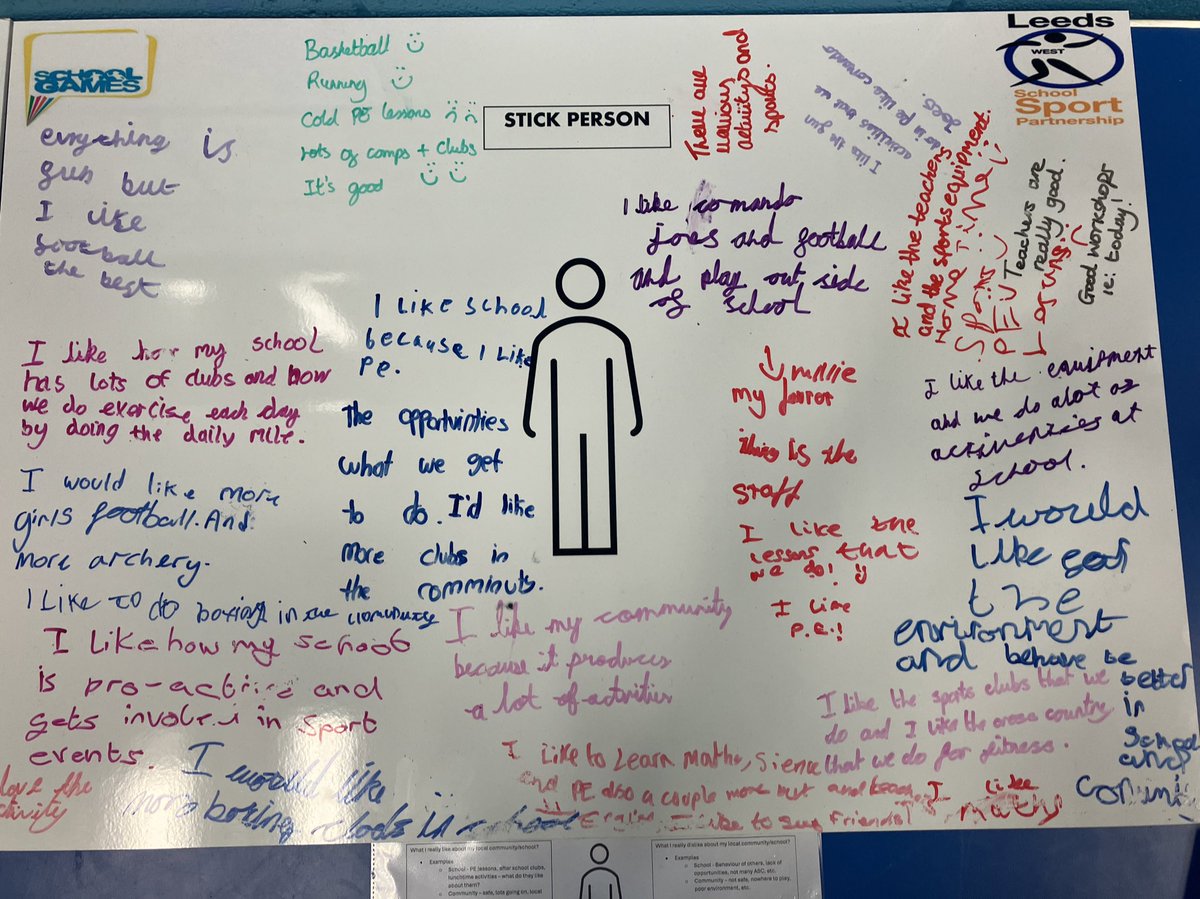 SCHOOL
GAMES
Basketball
Running
Cold PE lessons
lots of camps + clubs
It's good
STICK PERSON
There are
various
activitys and
sports.
I like the fun
activities that we
do in PE like comando
Joes.
Leeds
WEST
School
Sport
Partnership
everything is
fun but
I like
football
the best
I like comando
joes and football
and play out side
of school
I like the teachers
and the sports equipment.
Teachers are
really good.
Good workshops
ie: today!
I LIKE SCHOOL
because I like
Pe.
I like how my school
has lots of clubs and how
we do exercise each day
by doing the daily mile.
The opportvinties
what we get
to do. I'd like
more clubs in
the comminuts.
my favrot
thing is the
staff
I like the equitment
and we do alot of
activenties at
school.
I would like more
girls football. And
more archery.
I like the
lessons that
we do!
I like
P.E.!
I would
like
the
environment
and behave be
better
in
school
and
I LIKE TO do boxing in the
I like how my school
is pro-active and
gets involved in sport
events.
I like my community
because it produces
a lot of activities
I like the sports clubs that we
do and I like the cross country
that we do for fitness.
love the
activity
I would like
more boxing clubs in school
I like to Learn Maths, Sience
and PE also a couple more but
I like to see Friends!
I like
maths
What I really like about my local community/school?
Examples
School - PE lessons, after school clubs,
lunchtime activities – what do they like
about them?
Community – safe, lots going on, local
What I really dislike about my local community/school?
Examples
School - Behaviour of others, lack of
opportunities, not many ABC, etc.
Community - not safe, nowhere to play,
poor environment, etc.